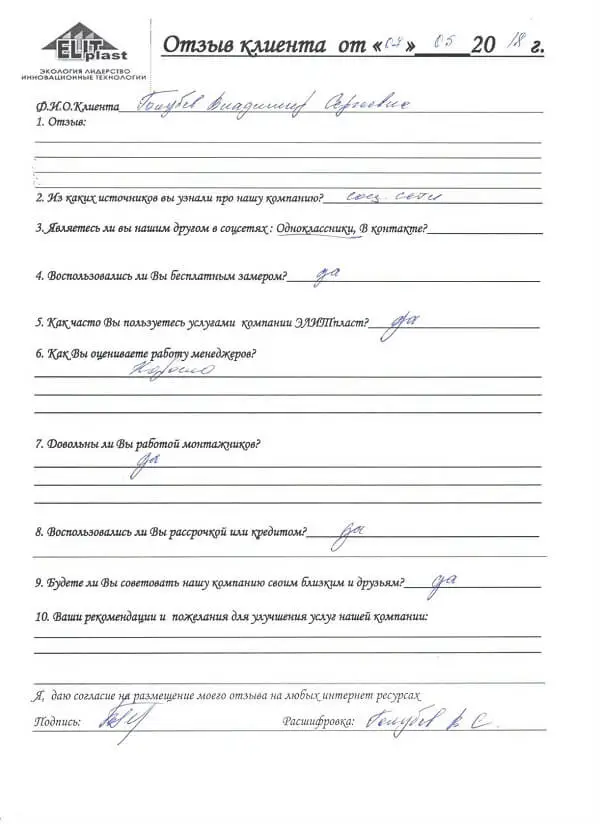 ELIT plast
ЭКОЛОГИЯ ЛИДЕРСТВО
ИННОВАЦИОННЫЕ ТЕХНОЛОГИИ
Отзыв клиента от «07» 05 2018 г.
Ф.И.О.Клиента Голубев Владимир Сергеевич
1. Отзыв:
2. Из каких источников вы узнали про нашу компанию? соц. сети
3. Являетесь ли вы нашим другом в соцсетях : Одноклассники, В контакте?
4. Воспользовались ли Вы бесплатным замером? да
5. Как часто Вы пользуетесь услугами компании ЭЛИТпласт? да
6. Как Вы оцениваете работу менеджеров?
Хорошо
7. Довольны ли Вы работой монтажников?
да
8. Воспользовались ли Вы рассрочкой или кредитом? да
9. Будете ли Вы советовать нашу компанию своим близким и друзьям? да
10. Ваши рекомендации и пожелания для улучшения услуг нашей компании:
Я, даю согласие на размещение моего отзыва на любых интернет ресурсах
Подпись: Расшифровка: Голубев В С.